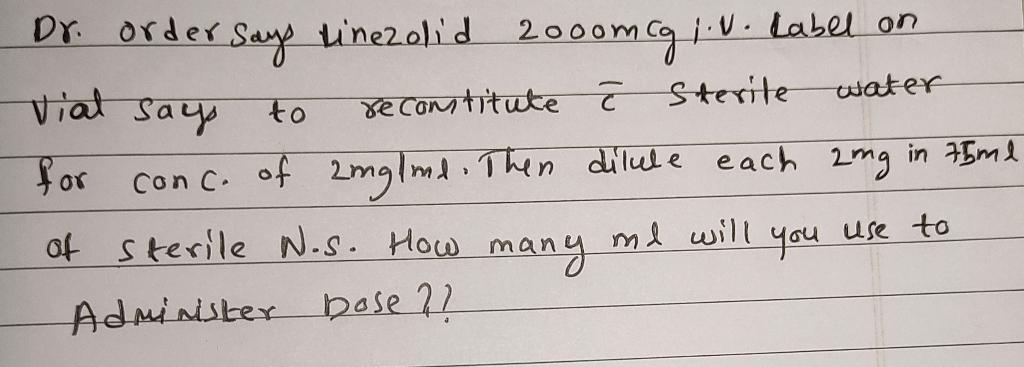 Dr. order says Linezolid 2000mcg i.v. Label on
Vial says to reconstitute c̄ Sterile water
for conc. of 2mg/ml. Then dilute each 2mg in 75ml
of sterile N.S. How many ml will you use to
Administer Dose ??